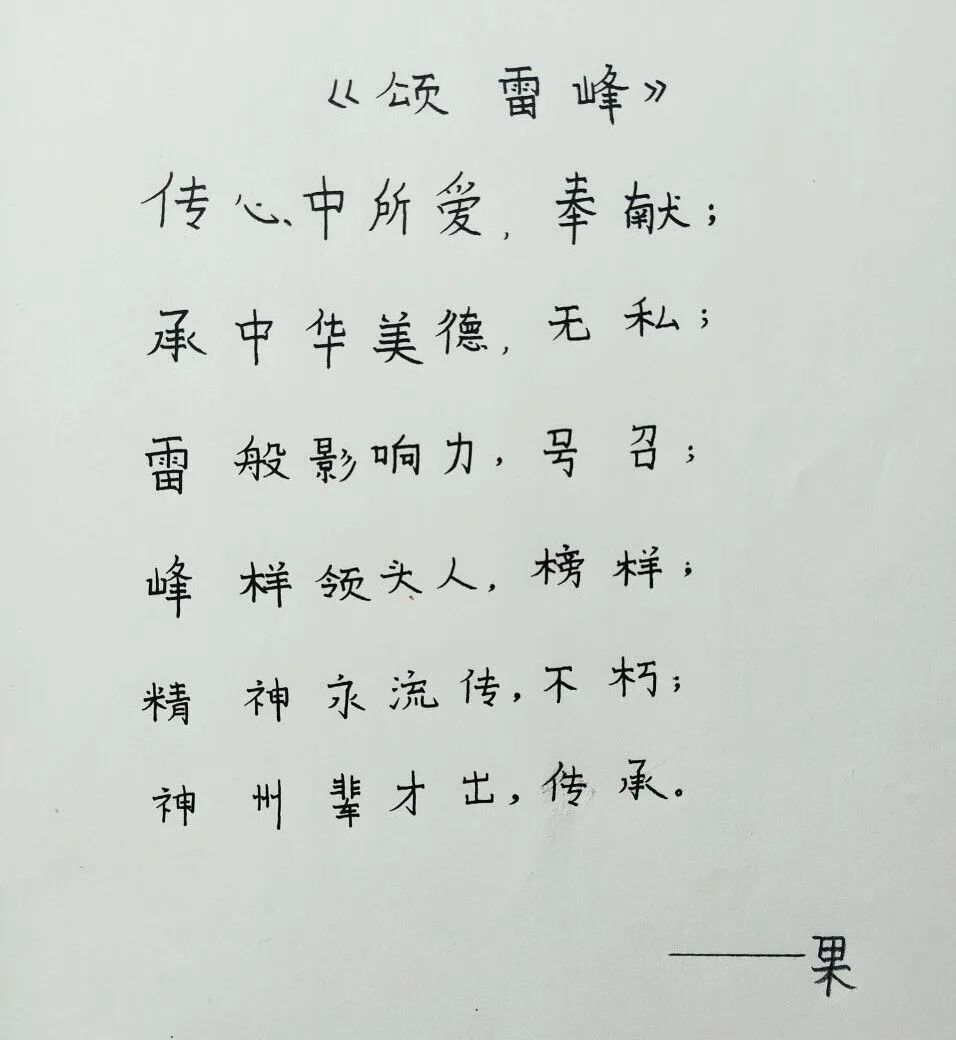 《颂雷峰》
传心中所爱，奉献；
承中华美德，无私；
雷般影响力，号召；
峰样领头人，榜样；
精神永流传，不朽；
神州辈才出，传承。
——果